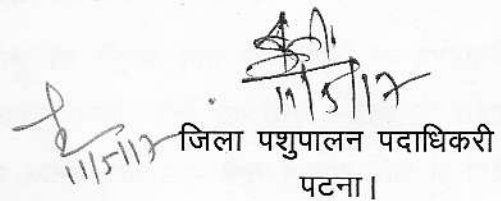 11/5/17
11/5/17
जिला पशुपालन पदाधिकरी
पटना।